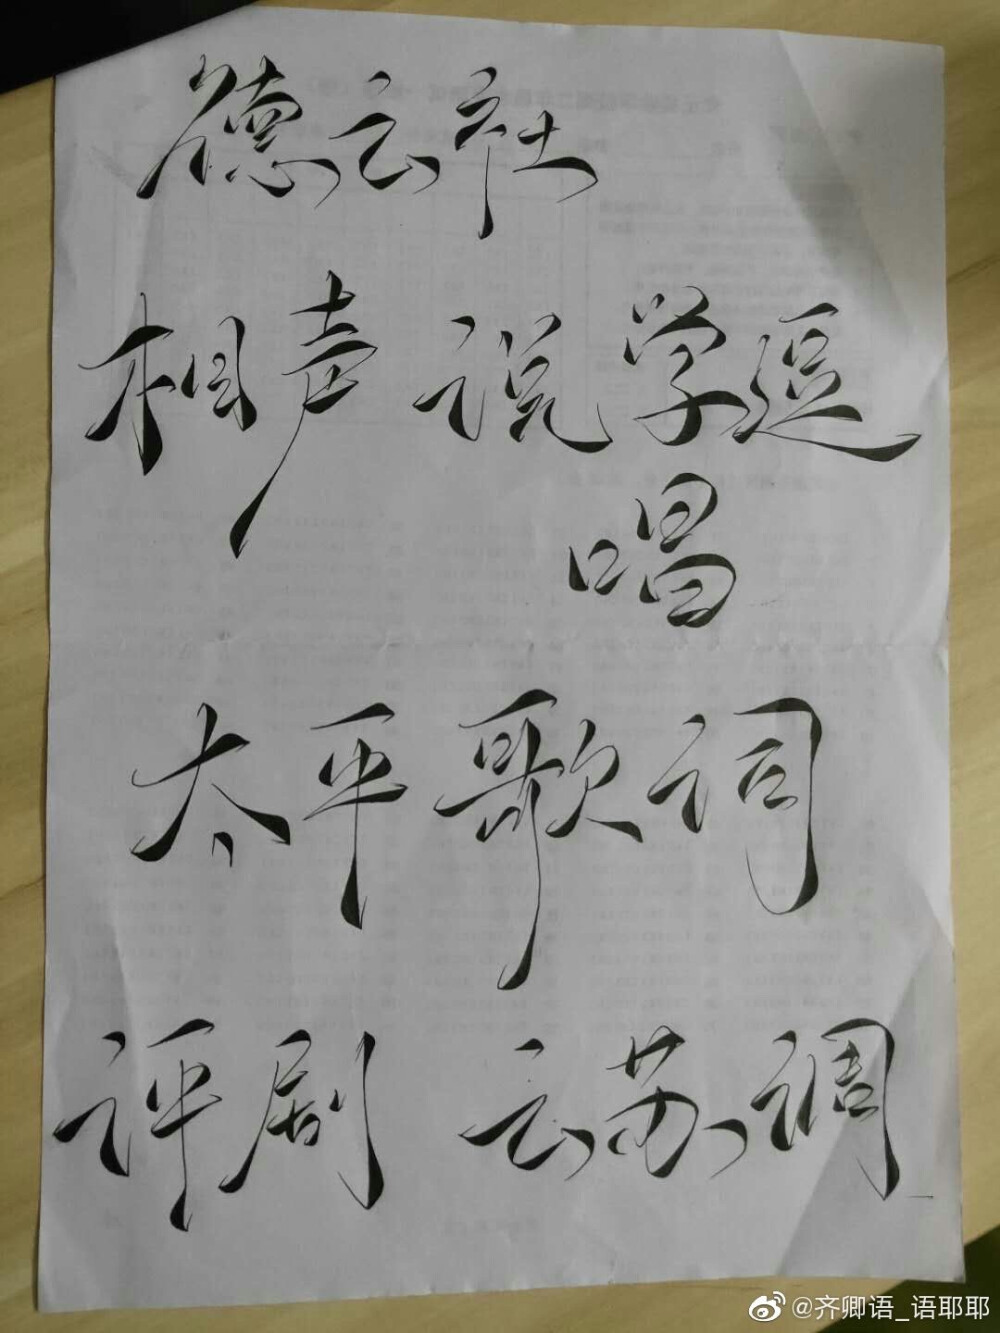 德云社
相声 说学逗
唱
太平歌词
评剧 云苏调
@齐卿语_语耶耶